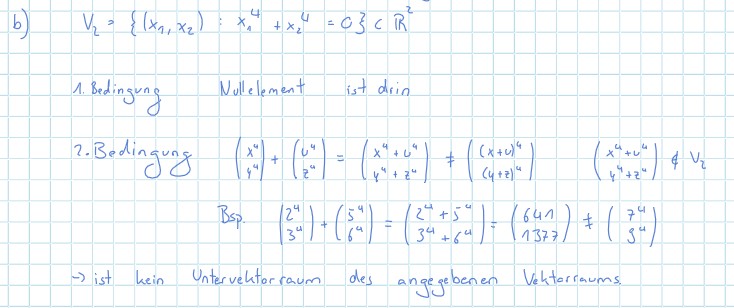 b) V₂ = {(x₁, x₂) : x₁⁴ + x₂⁴ = 0} ⊂ ℝ²
1. Bedingung Nullelement ist drin
2. Bedingung (x⁴ y⁴) + (u⁴ z⁴) = (x⁴ + u⁴ y⁴ + z⁴) ≠ ((x+u)⁴ (y+z)⁴) (x⁴+u⁴ y⁴+z⁴) ∉ V₂
Bsp. (2⁴ 3⁴) + (5⁴ 6⁴) = (2⁴ + 5⁴ 3⁴ + 6⁴) = (641 1377) ≠ (7⁴ 9⁴)
→ ist kein Untervektorraum des angegebenen Vektorraums.